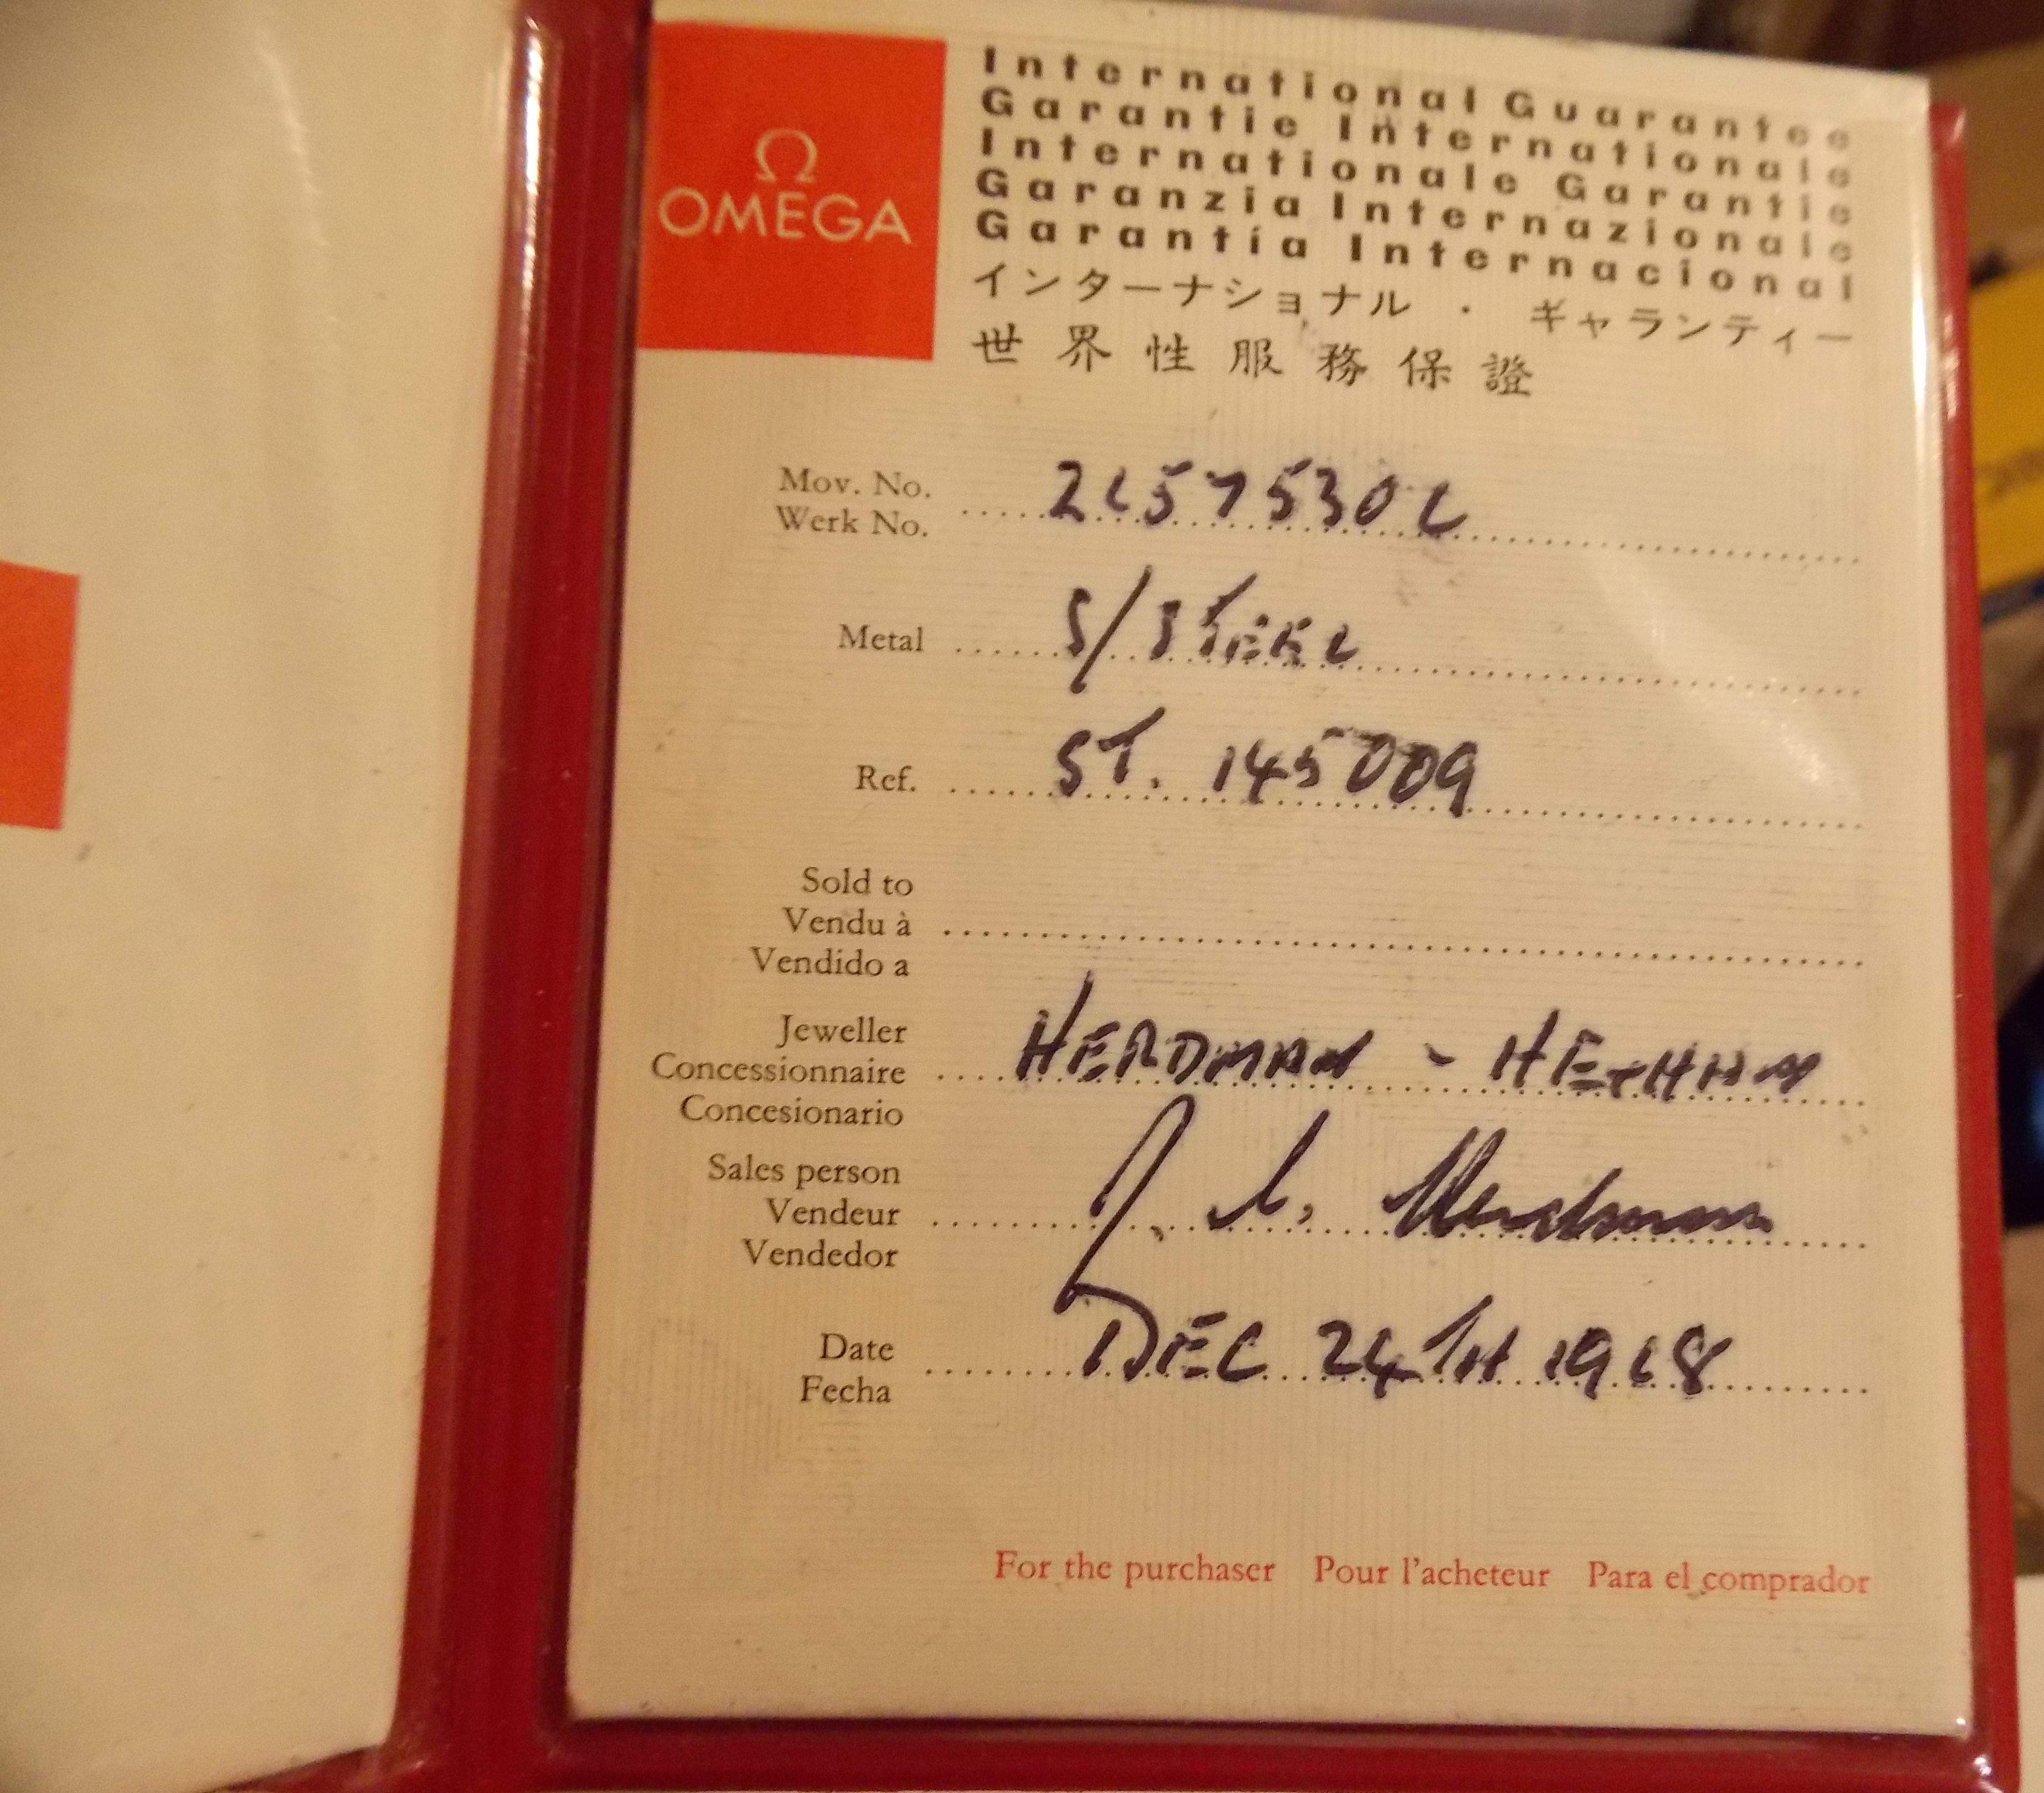 Ω
OMEGA
International Guarantee
Garantie Internationale
Internationale Garantie
Garanzia Internazionale
Garantía Internacional
インターナショナル ・ ギャランティー
世界性服務保證
Mov. No.
Werk No. 26575306
Metal S/STEEL
Ref. ST. 145009
Sold to
Vendu à
Vendido a
Jeweller
Concessionnaire HERDMAN - HEXHAM
Concesionario
Sales person
Vendeur Herdman
Vendedor
Date DEC 24TH 1968
Fecha
For the purchaser Pour l'acheteur Para el comprador